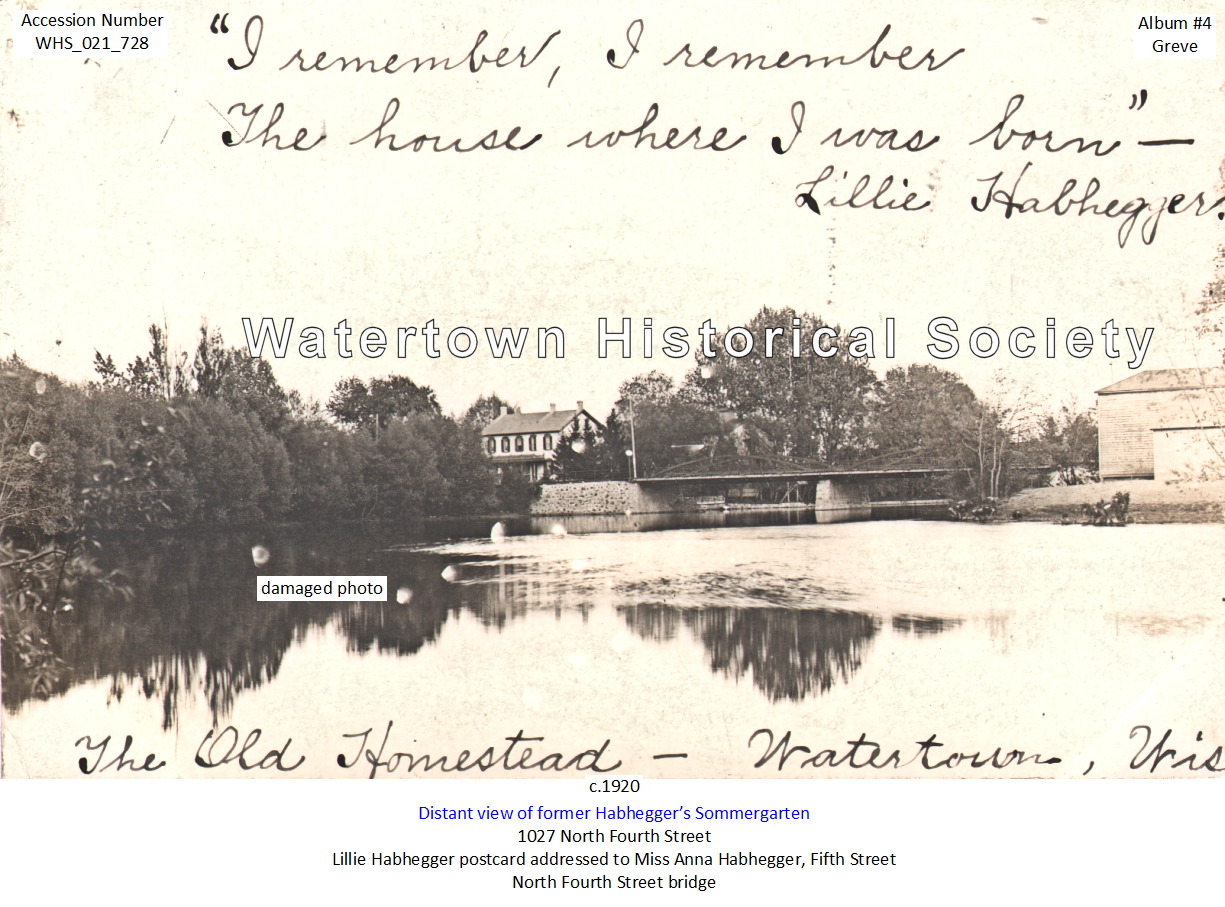 Accession Number
WHS_021_728
Album #4
Greve
“I remember, I remember
The house where I was born” —
Lillie Habhegger.
Watertown Historical Society
damaged photo
The Old Homestead — Watertown, Wis
c.1920
Distant view of former Habhegger’s Sommergarten
1027 North Fourth Street
Lillie Habhegger postcard addressed to Miss Anna Habhegger, Fifth Street
North Fourth Street bridge